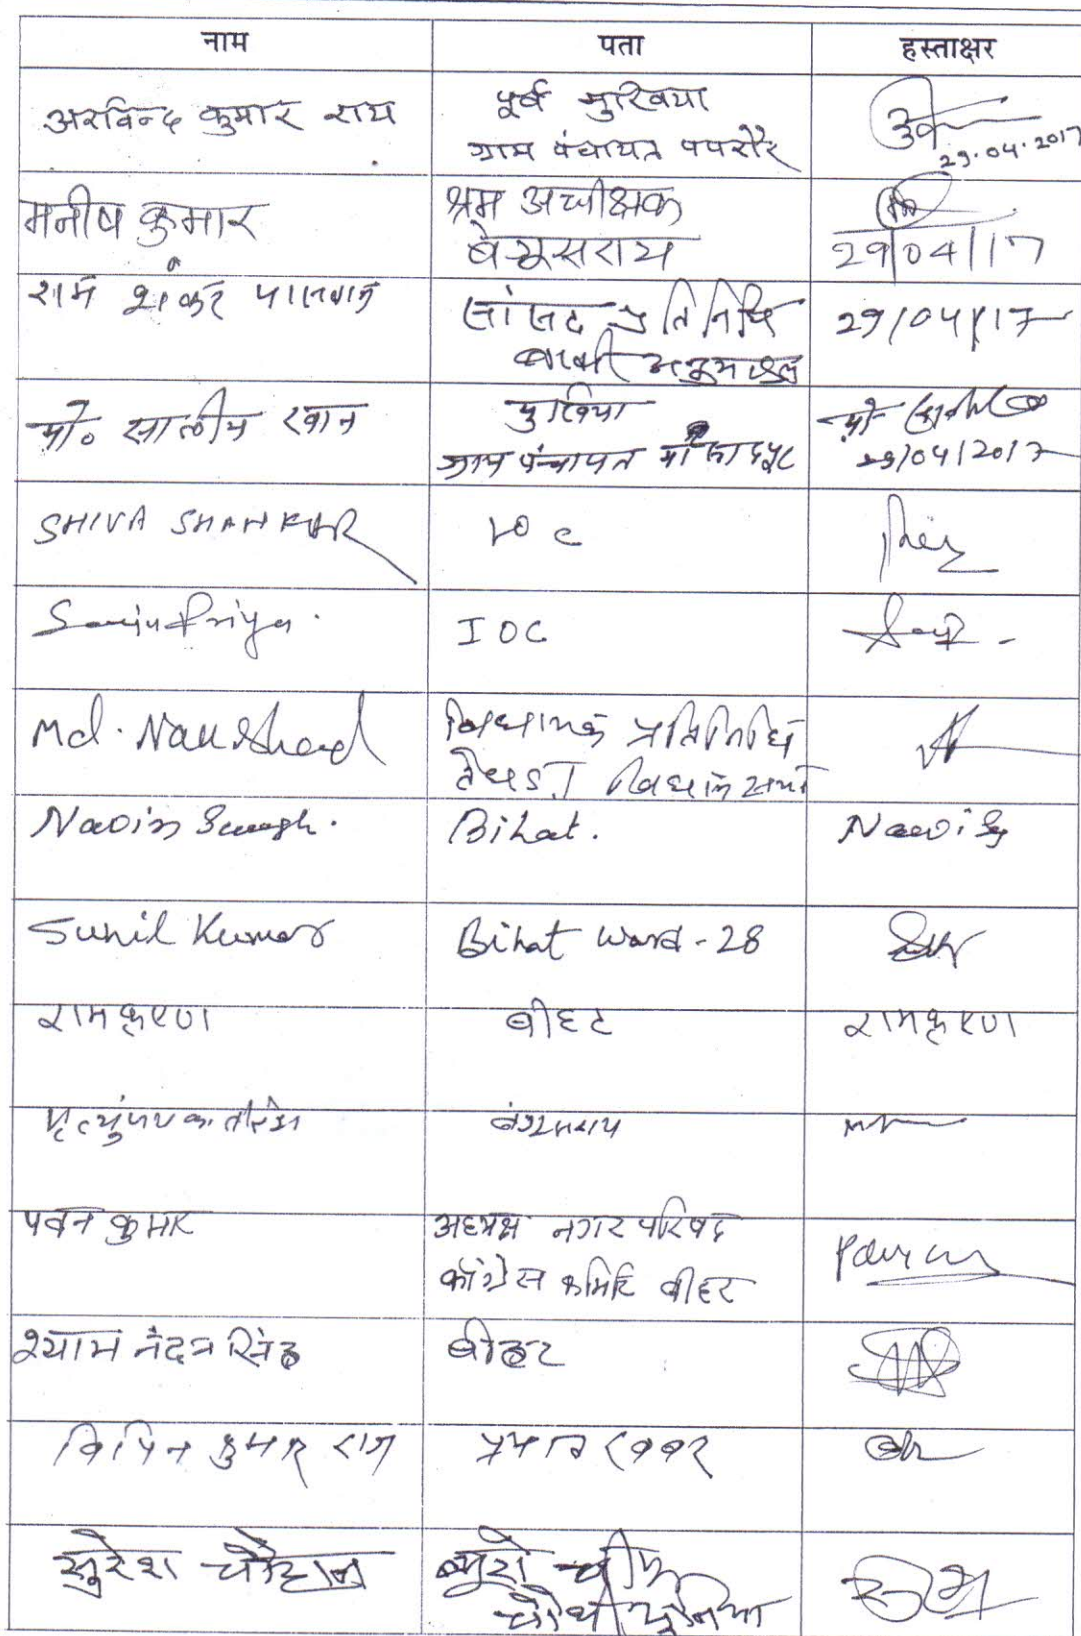 नाम पता हस्ताक्षर
अरविन्द कुमार राय पूर्व मुखिया
ग्राम पंचायत पपरौर 29.04.2017
मनीष कुमार श्रम अधीक्षक
बेगूसराय 29/04/17
राम शंकर पासवान सांसद प्रतिनिधि 29/04/17
मो० सालीम खान मुखिया मो०
ग्राम पंचायत 29/04/2017
SHIVA SHANKAR IOC
IOC
Md. Naushad विधायक प्रतिनिधि
तेघड़ा विधान सभा
Navin Singh. Bihat.
Sunil Kumar Bihat Ward-28
रामकृष्ण बीहट रामकृष्ण
बेगूसराय
पवन कुमार अध्यक्ष नगर परिषद
कांग्रेस कमिटि बीहट
श्याम नंदन सिंह बीहट
विपिन कुमार राज
सुरेश चौहान ब्यूरो चीफ
चौथी दुनिया